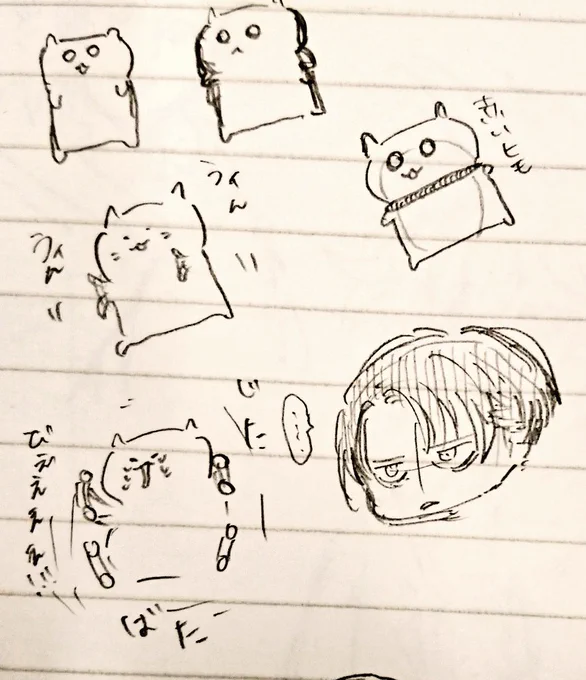 きいヒモ
うぃん
うぃん
じた
びええええん!!!
ばた